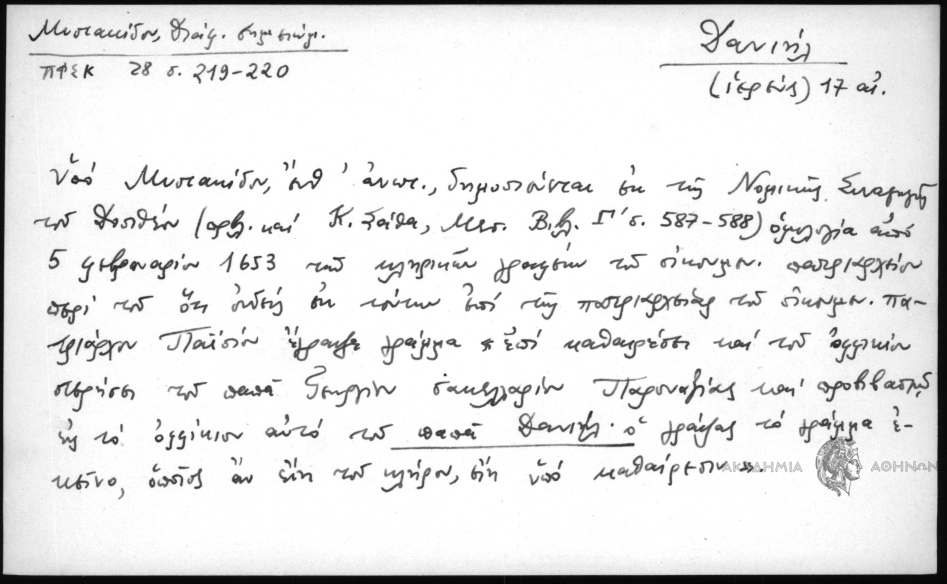 Μυστακίδου, Διάφ. σημειώμ.
ΠΦΣΚ 28 σ. 219-220
Δανιήλ
(ἱερεύς) 17 αἰ.
Ὑπό Μυστακίδου, ἔνθ' ἀνωτ., δημοσιεύεται ἐκ τῆς Νομικῆς Συναγωγῆς
τοῦ Δοσιθέου (πρβλ. καί Κ. Σάθα, Μεσ. Βιβλ. Γ' σ. 587-588) ὁμολογία ἀπό
5 φεβρουαρίου 1653 τῶν κληρικῶν γραφέων τοῦ οἰκουμεν. πατριαρχείου
περί τοῦ ὅτι οὐδείς ἐκ τούτων ἐπί τῆς πατριαρχείας τοῦ οἰκουμ. πα-
τριάρχου Παϊσίου ἔγραψε γράμμα «ἐπί καθαιρέσει καί τοῦ ὀφφικίου
στερήσει τοῦ παπᾶ Γεωργίου σακελλαρίου Παροναξίας καί προβιβασμῷ
εἰς τό ὀφφίκιον αὐτό τοῦ παπᾶ Δανιήλ. ὁ γράψας τό γράμμα ἐ-
κεῖνο, ὅποιος ἄν εἴη τοῦ κλήρου, εἴη ὑπό καθαίρεσιν»
ΑΚΑΔΗΜΙΑ ΑΘΗΝΩΝ